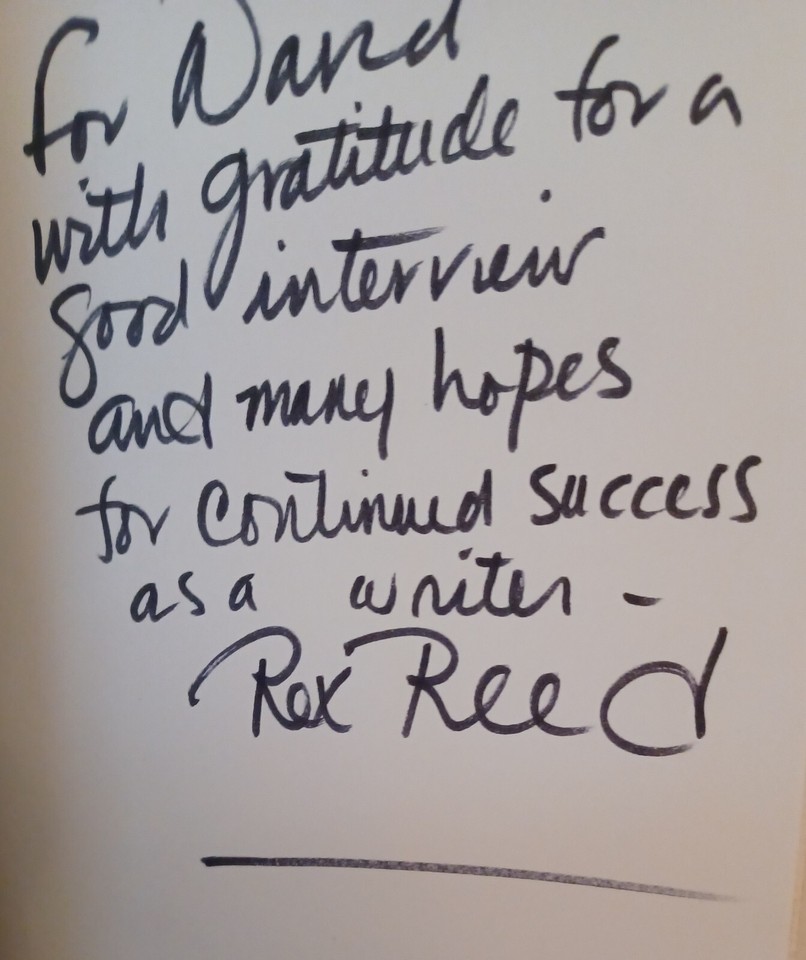 for David
with gratitude for a
good interview
and many hopes
for continued success
as a writer -
Rex Reed